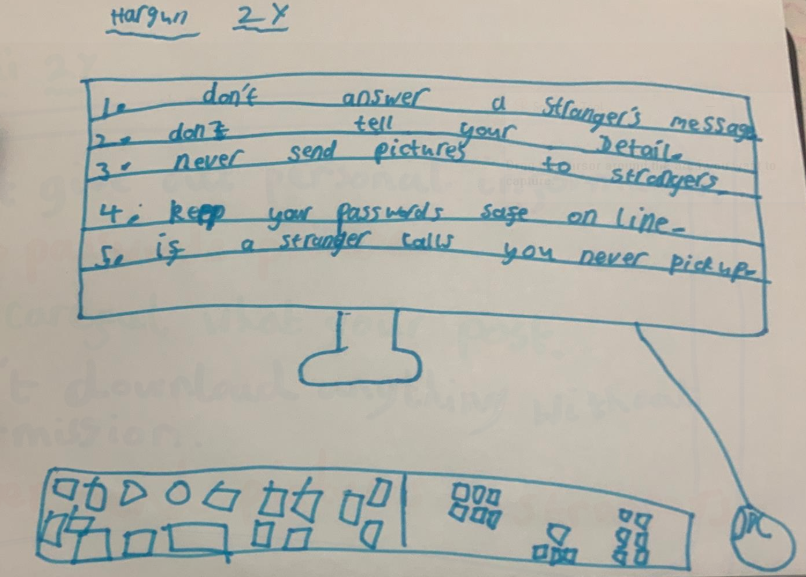 Hargun 2X
1. don't answer a stranger's message
2. don't tell your Detail.
3. never send pictures to strangers
4. keep your passwords safe on line.
5. if a stranger calls you never pick up.